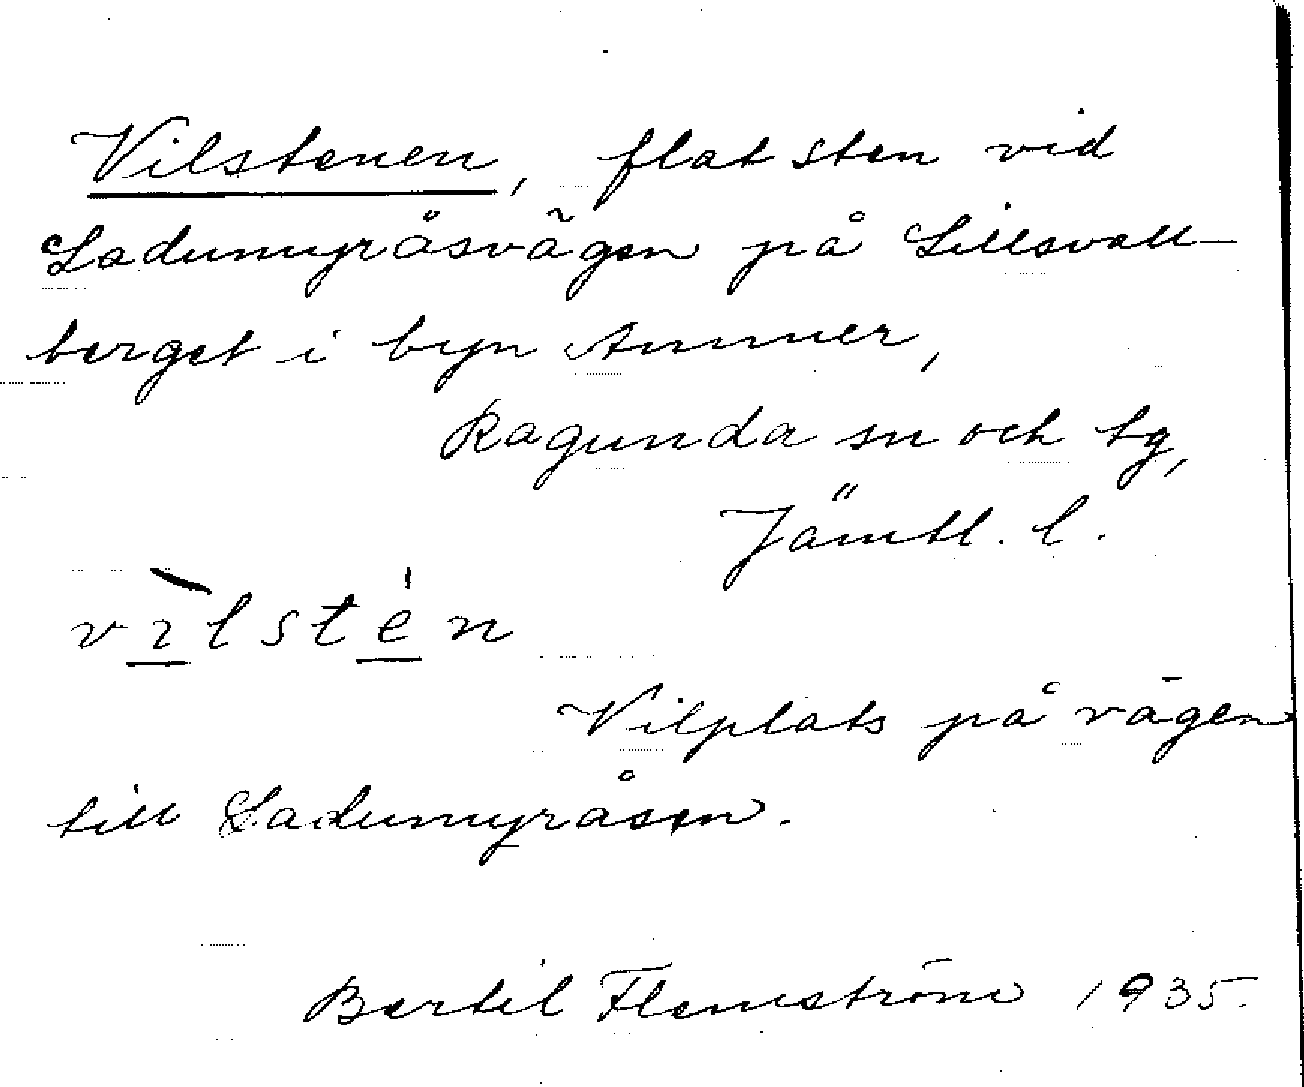 Vilstenen, flat sten vid
Ladumyråsvägen på Lillsvall-
berget i byn Ammer,
Ragunda sn och tg,
Jämtl. l.
vìlstén
Vilplats på vägen
till Ladumyråsen.
Bertil Flemström 1935.